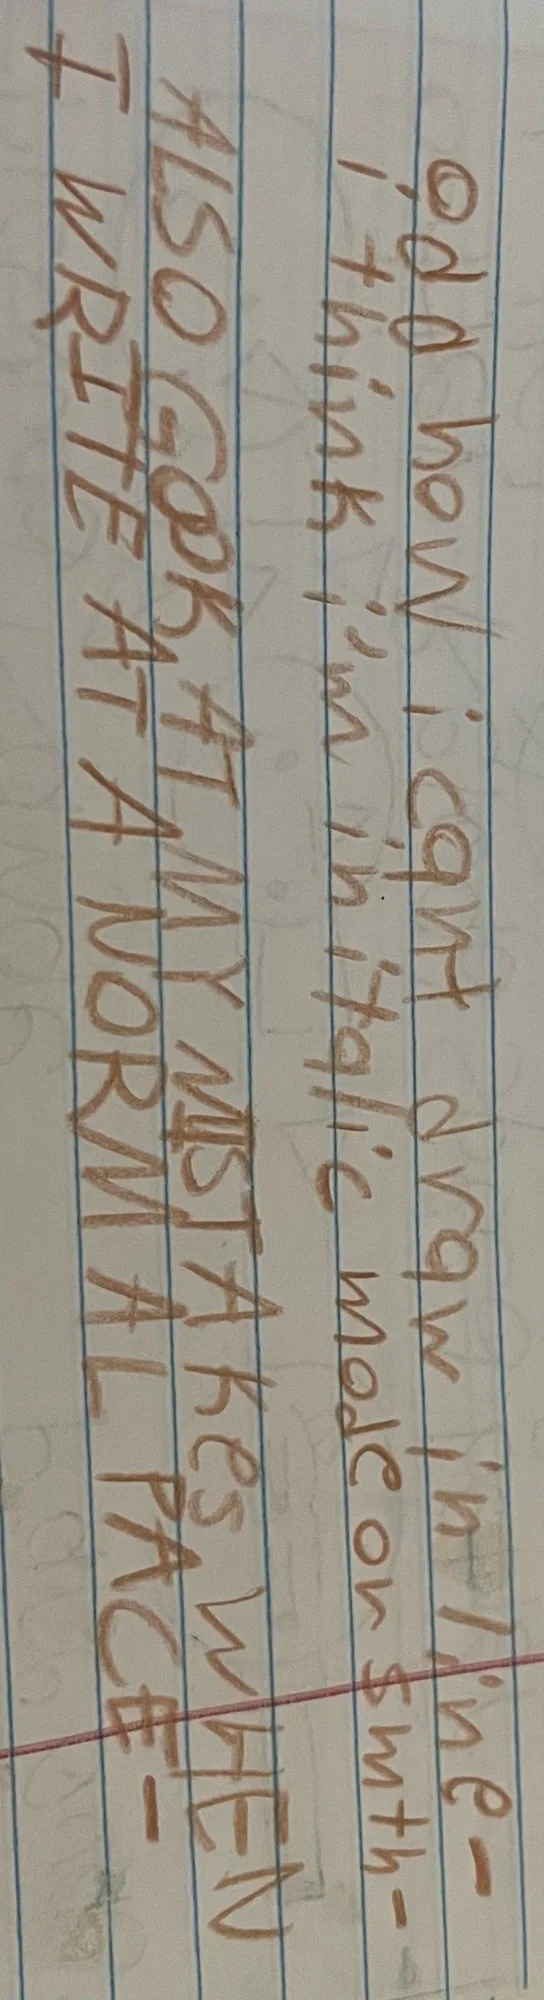 odd how i cant draw in line-
i think i'm in italic mode on smth-
ALSO GOOK AT MY MISTAKes WHEN
I WRITE AT A NORMAL PACE-